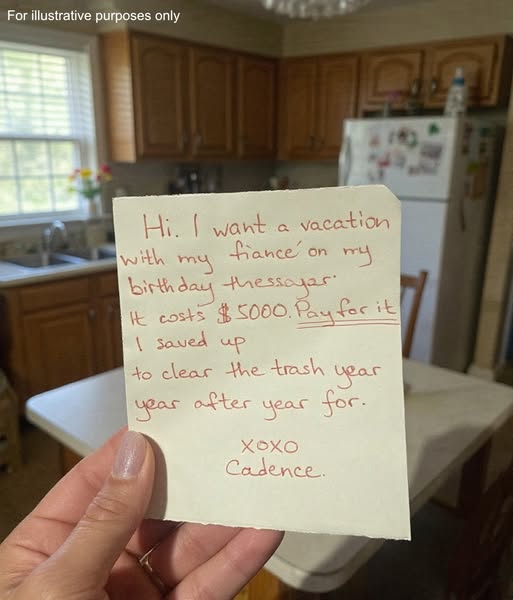 For illustrative purposes only
Hi. I want a vacation
with my fiancé on my
birthday thessayar.
It costs $5000. Pay for it
I saved up
to clear the trash year
year after year for.
xoxo
Cadence.